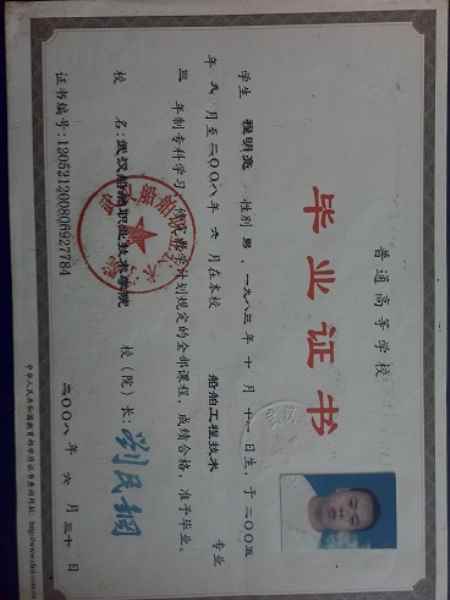 普通高等学校
毕业证书
学生 程明亮 性别 男，一九八三年 十 月 十一 日生，于 二〇〇五
年 九 月至 二〇〇八年 六 月在本校 船舶工程技术 专业
三 年制专科学习，修完教学计划规定的全部课程，成绩合格，准予毕业。
校 名：武汉船舶职业技术学院 校（院）长：
证书编号：120521200806927784 二〇〇八 年 六 月 三十 日
中华人民共和国教育部学历证书查询网址：http://www.chsi.com.cn